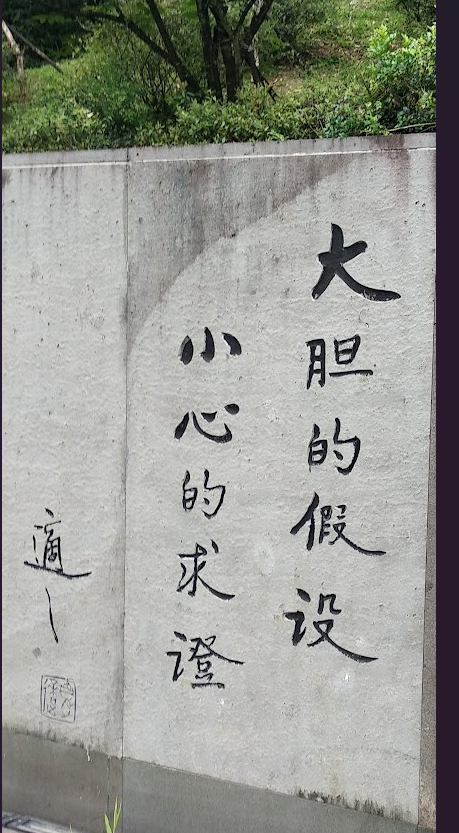 大胆的假设
小心的求證
適之